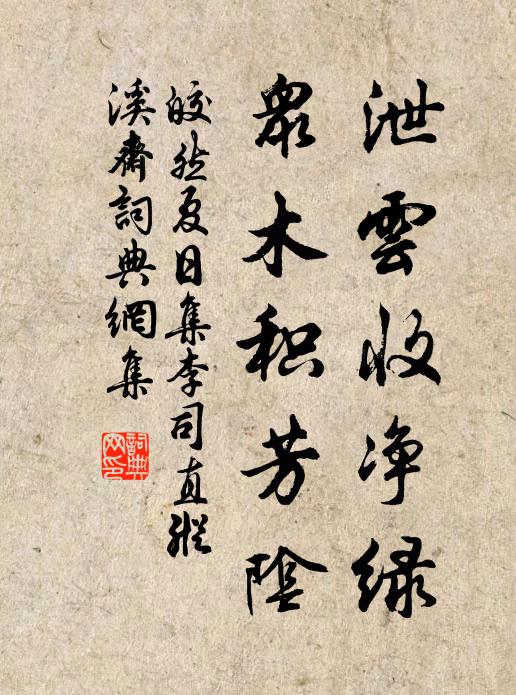 泄雲收净緑
衆木积芳陰
皎然夏日集李司直縱
溪齋詞典網集
詞典
网印